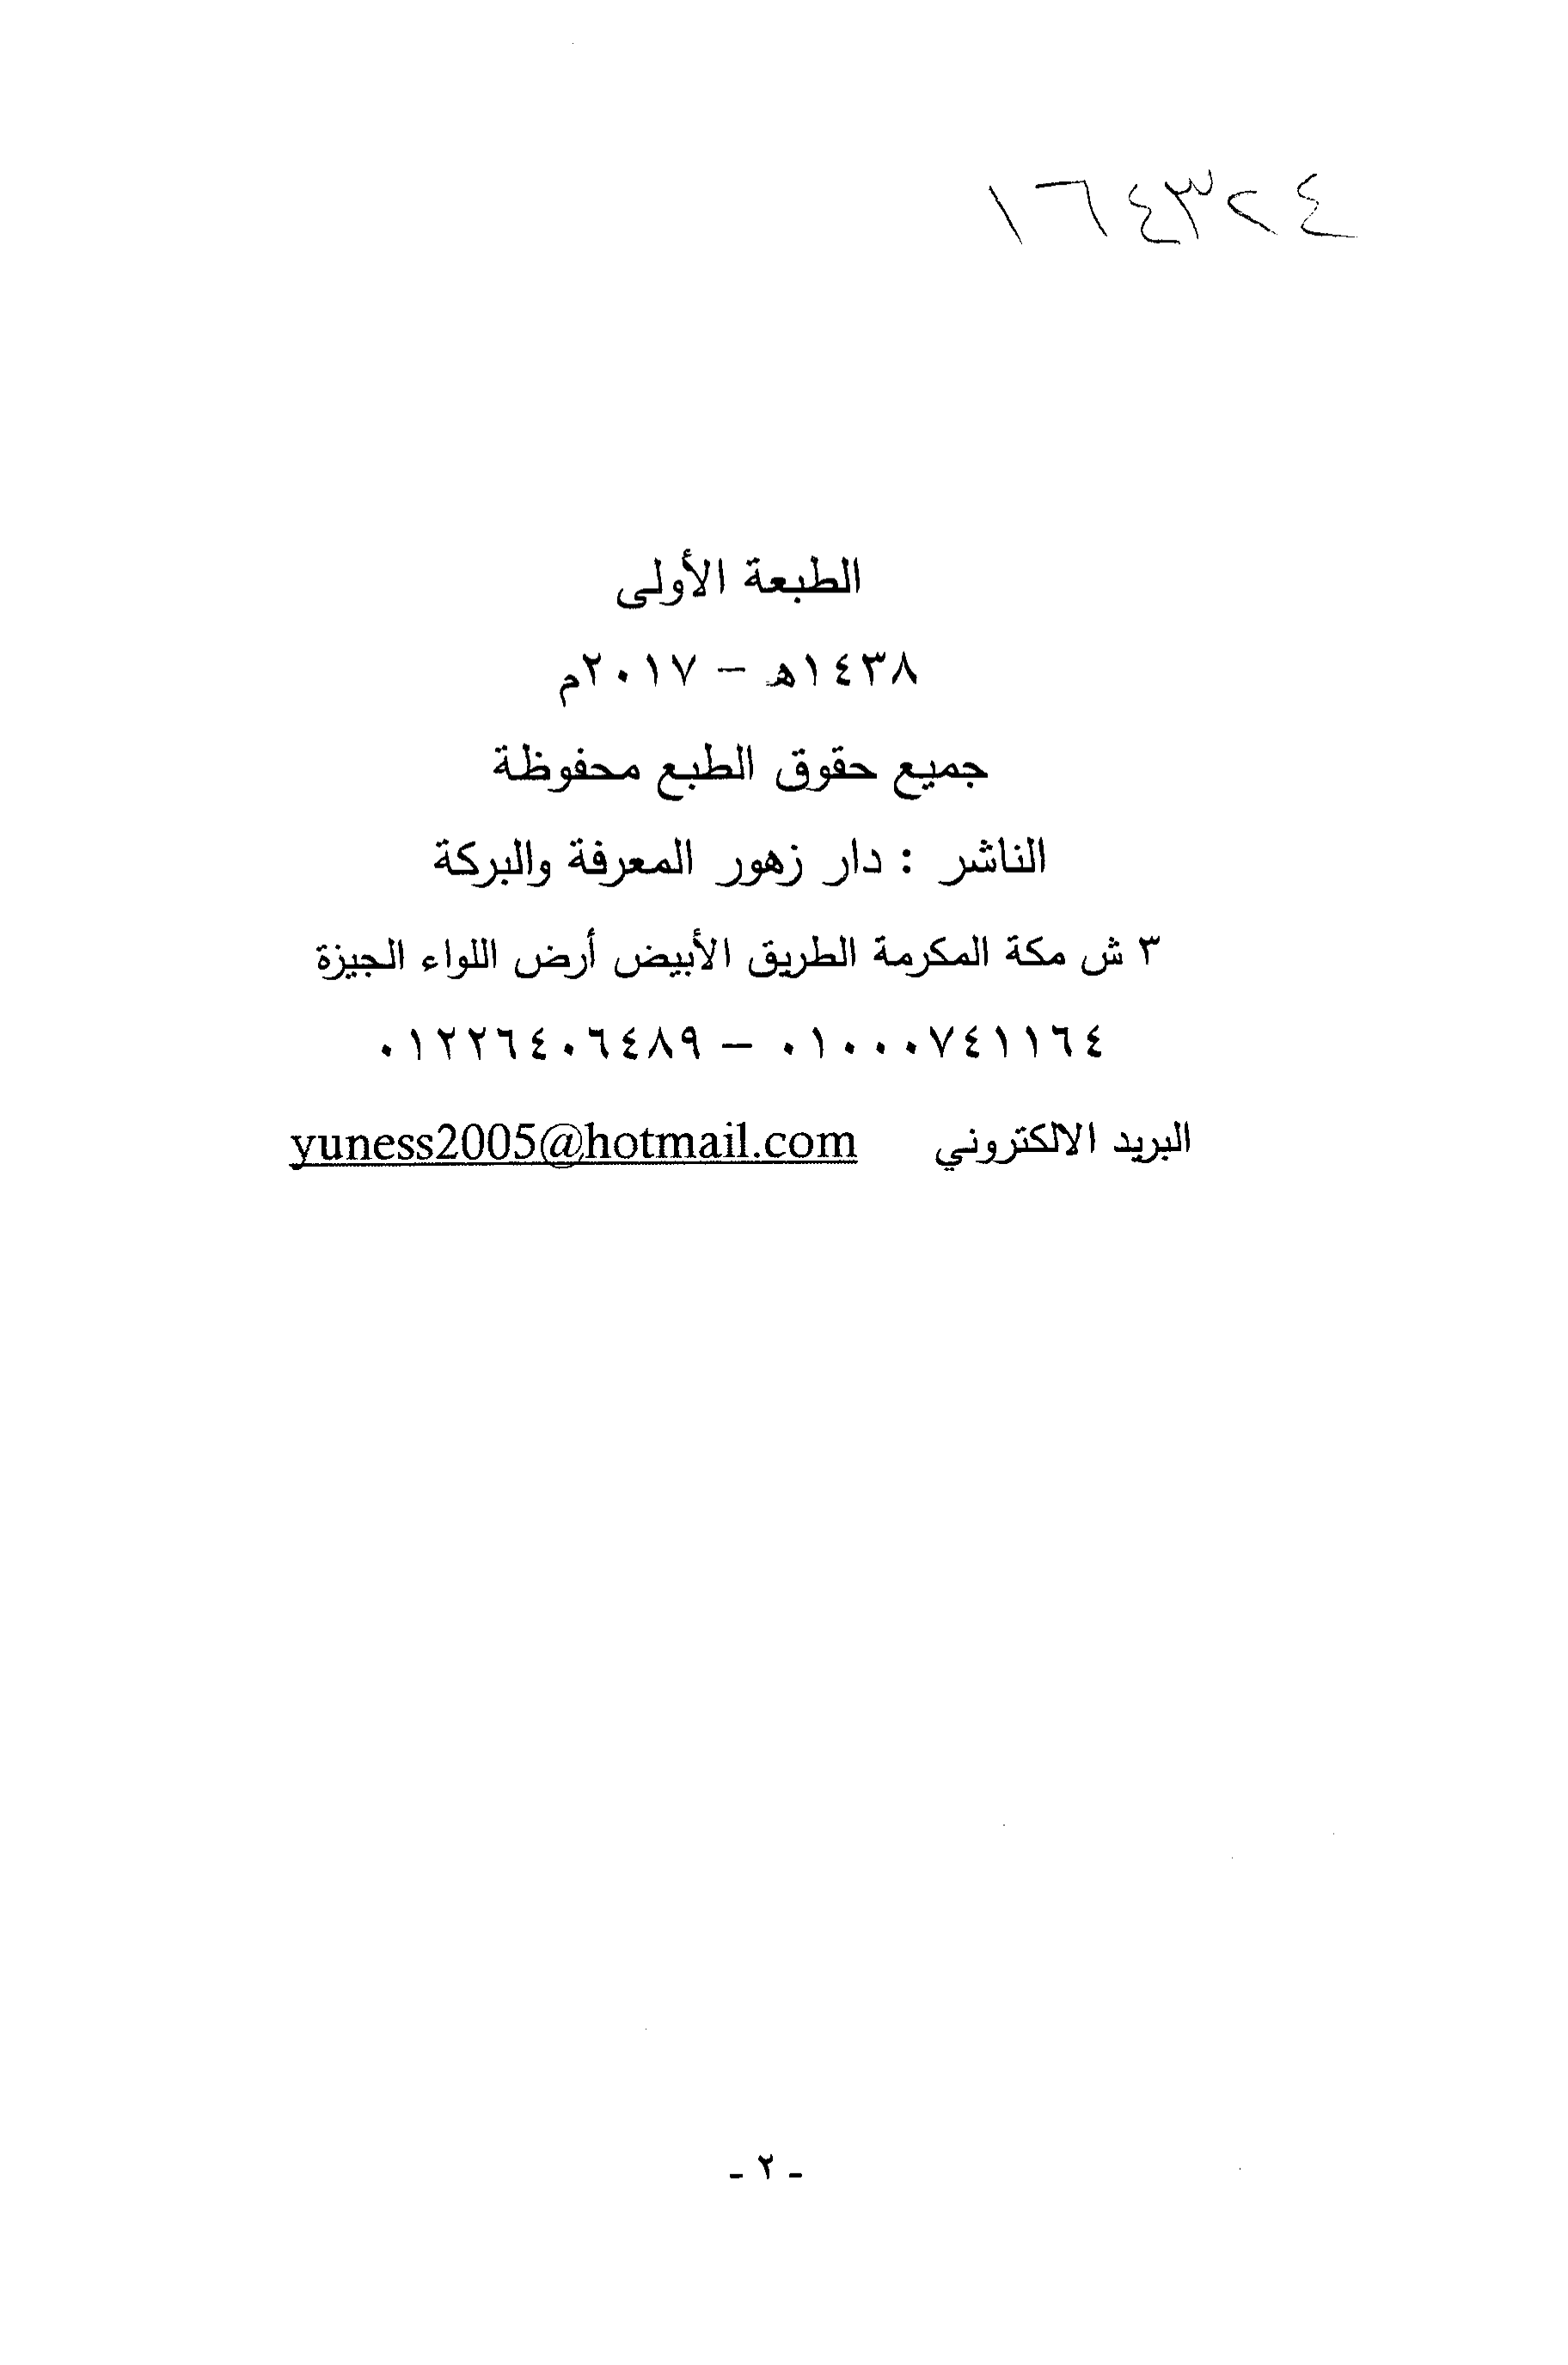 ١٦٤٣٢٤
الطبعة الأولى
١٤٣٨هـ – ٢٠١٧م
جميع حقوق الطبع محفوظة
الناشر : دار زهور المعرفة والبركة
٣ ش مكة المكرمة الطريق الأبيض أرض اللواء الجيزة
٠١٢٢٦٤٠٦٤٨٩ – ٠١٠٠٠٧٤١١٦٤
البريد الالكتروني yuness2005@hotmail.com
- ٢ -